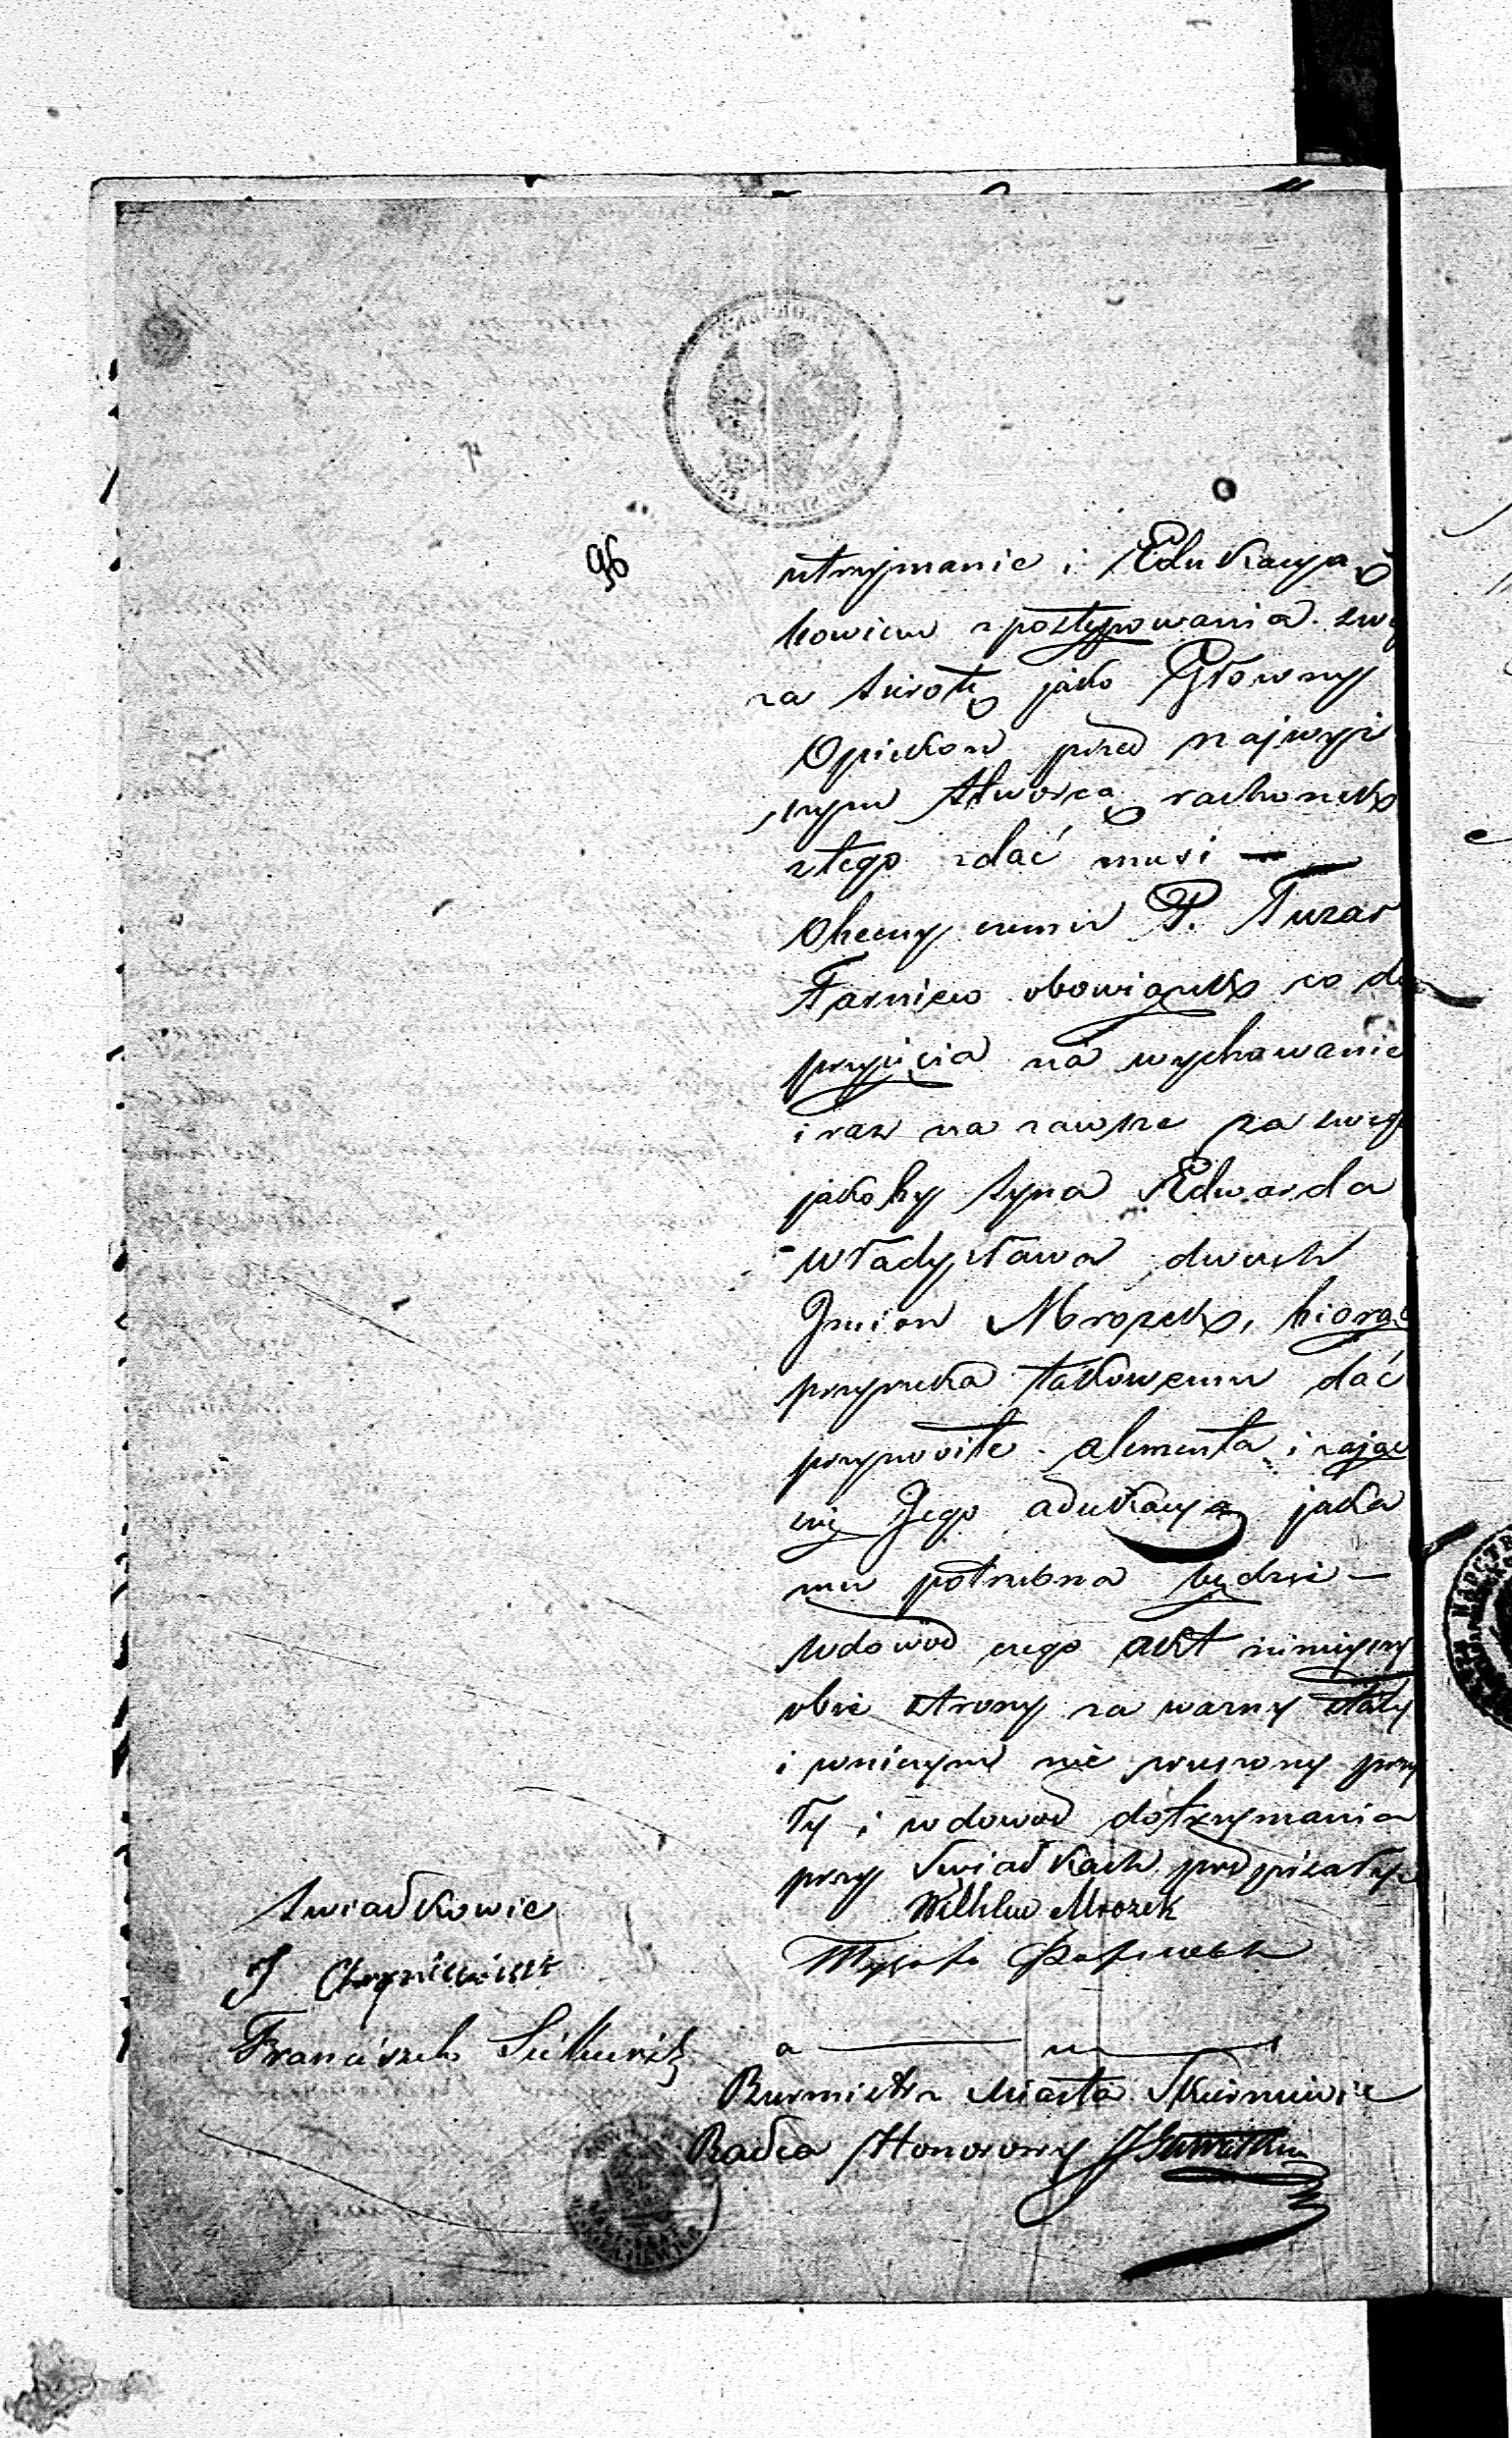 96
utrzymanie i Edukacyą
bowiem z postępowania swe
za sierotę jako Główny
Opiekon przed najwyż
szym Stwórcą rachonek
z tego zdać musi —
Obecny temu P.
obowiązek co do
przyięcia na wychowanie
i raz na zawsze za swego
jakoby syna Edwarda
Władysława dwuch
Jmion Mrozek, biorąc
przyrzeka takowemu dać
przyzwoite alementa i zając
się Jego adukacyą jaka
mu potrzebna będzie —
W dowod czego akt niniejszy
obie strony za wazny stały
i wniczym nie wzruszony przy
ły i w dowod dotrzymania
przy Swiadkach podpisały
Wilhelm Mrozek
Swiadkowie
Franciszek
Burmistrz Miasta Skierniewic
Radca Honorowy